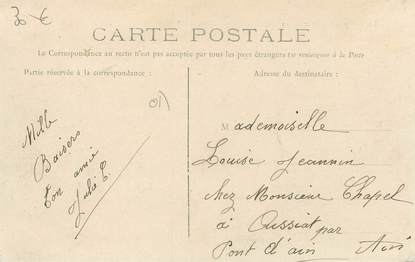 30 €
CARTE POSTALE
La Correspondance au recto n'est pas acceptée par tous les pays étrangers (se renseigner à la Poste
Partie réservée à la correspondance :
Adresse du destinataire :
01)
Mille
Baisers
Ton amie
Julie
Mademoiselle
Louise Jeannin
chez Monsieur Chapel
à Oussiat par
Pont d'ain Ain